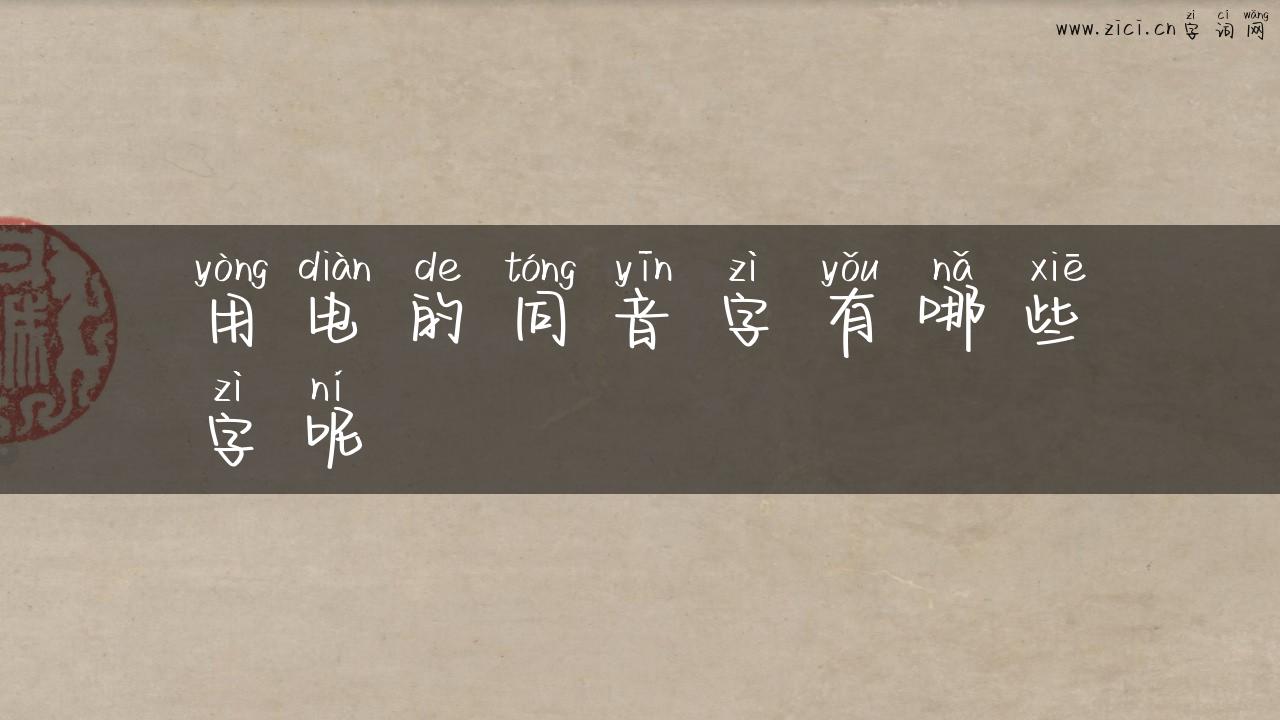 zì cí wǎng
www.zici.cn字词网
yòng diàn de tóng yīn zì yǒu nǎ xiē
用电的同音字有哪些
zì ní
字呢